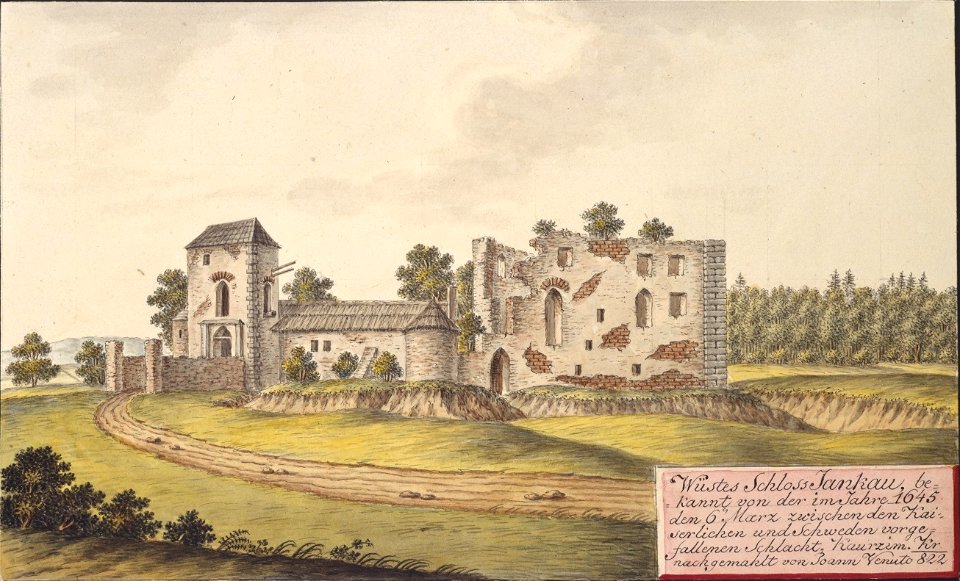 Wüstes Schloss Jankau, be=
kannt von der im Jahre 1645
den 6ᵗ März zwischen den Kai=
serlichen und Schweden vorge=
fallenen Schlacht. Kaurzim. Kr
nachgemahlt von Joann Venuto 822